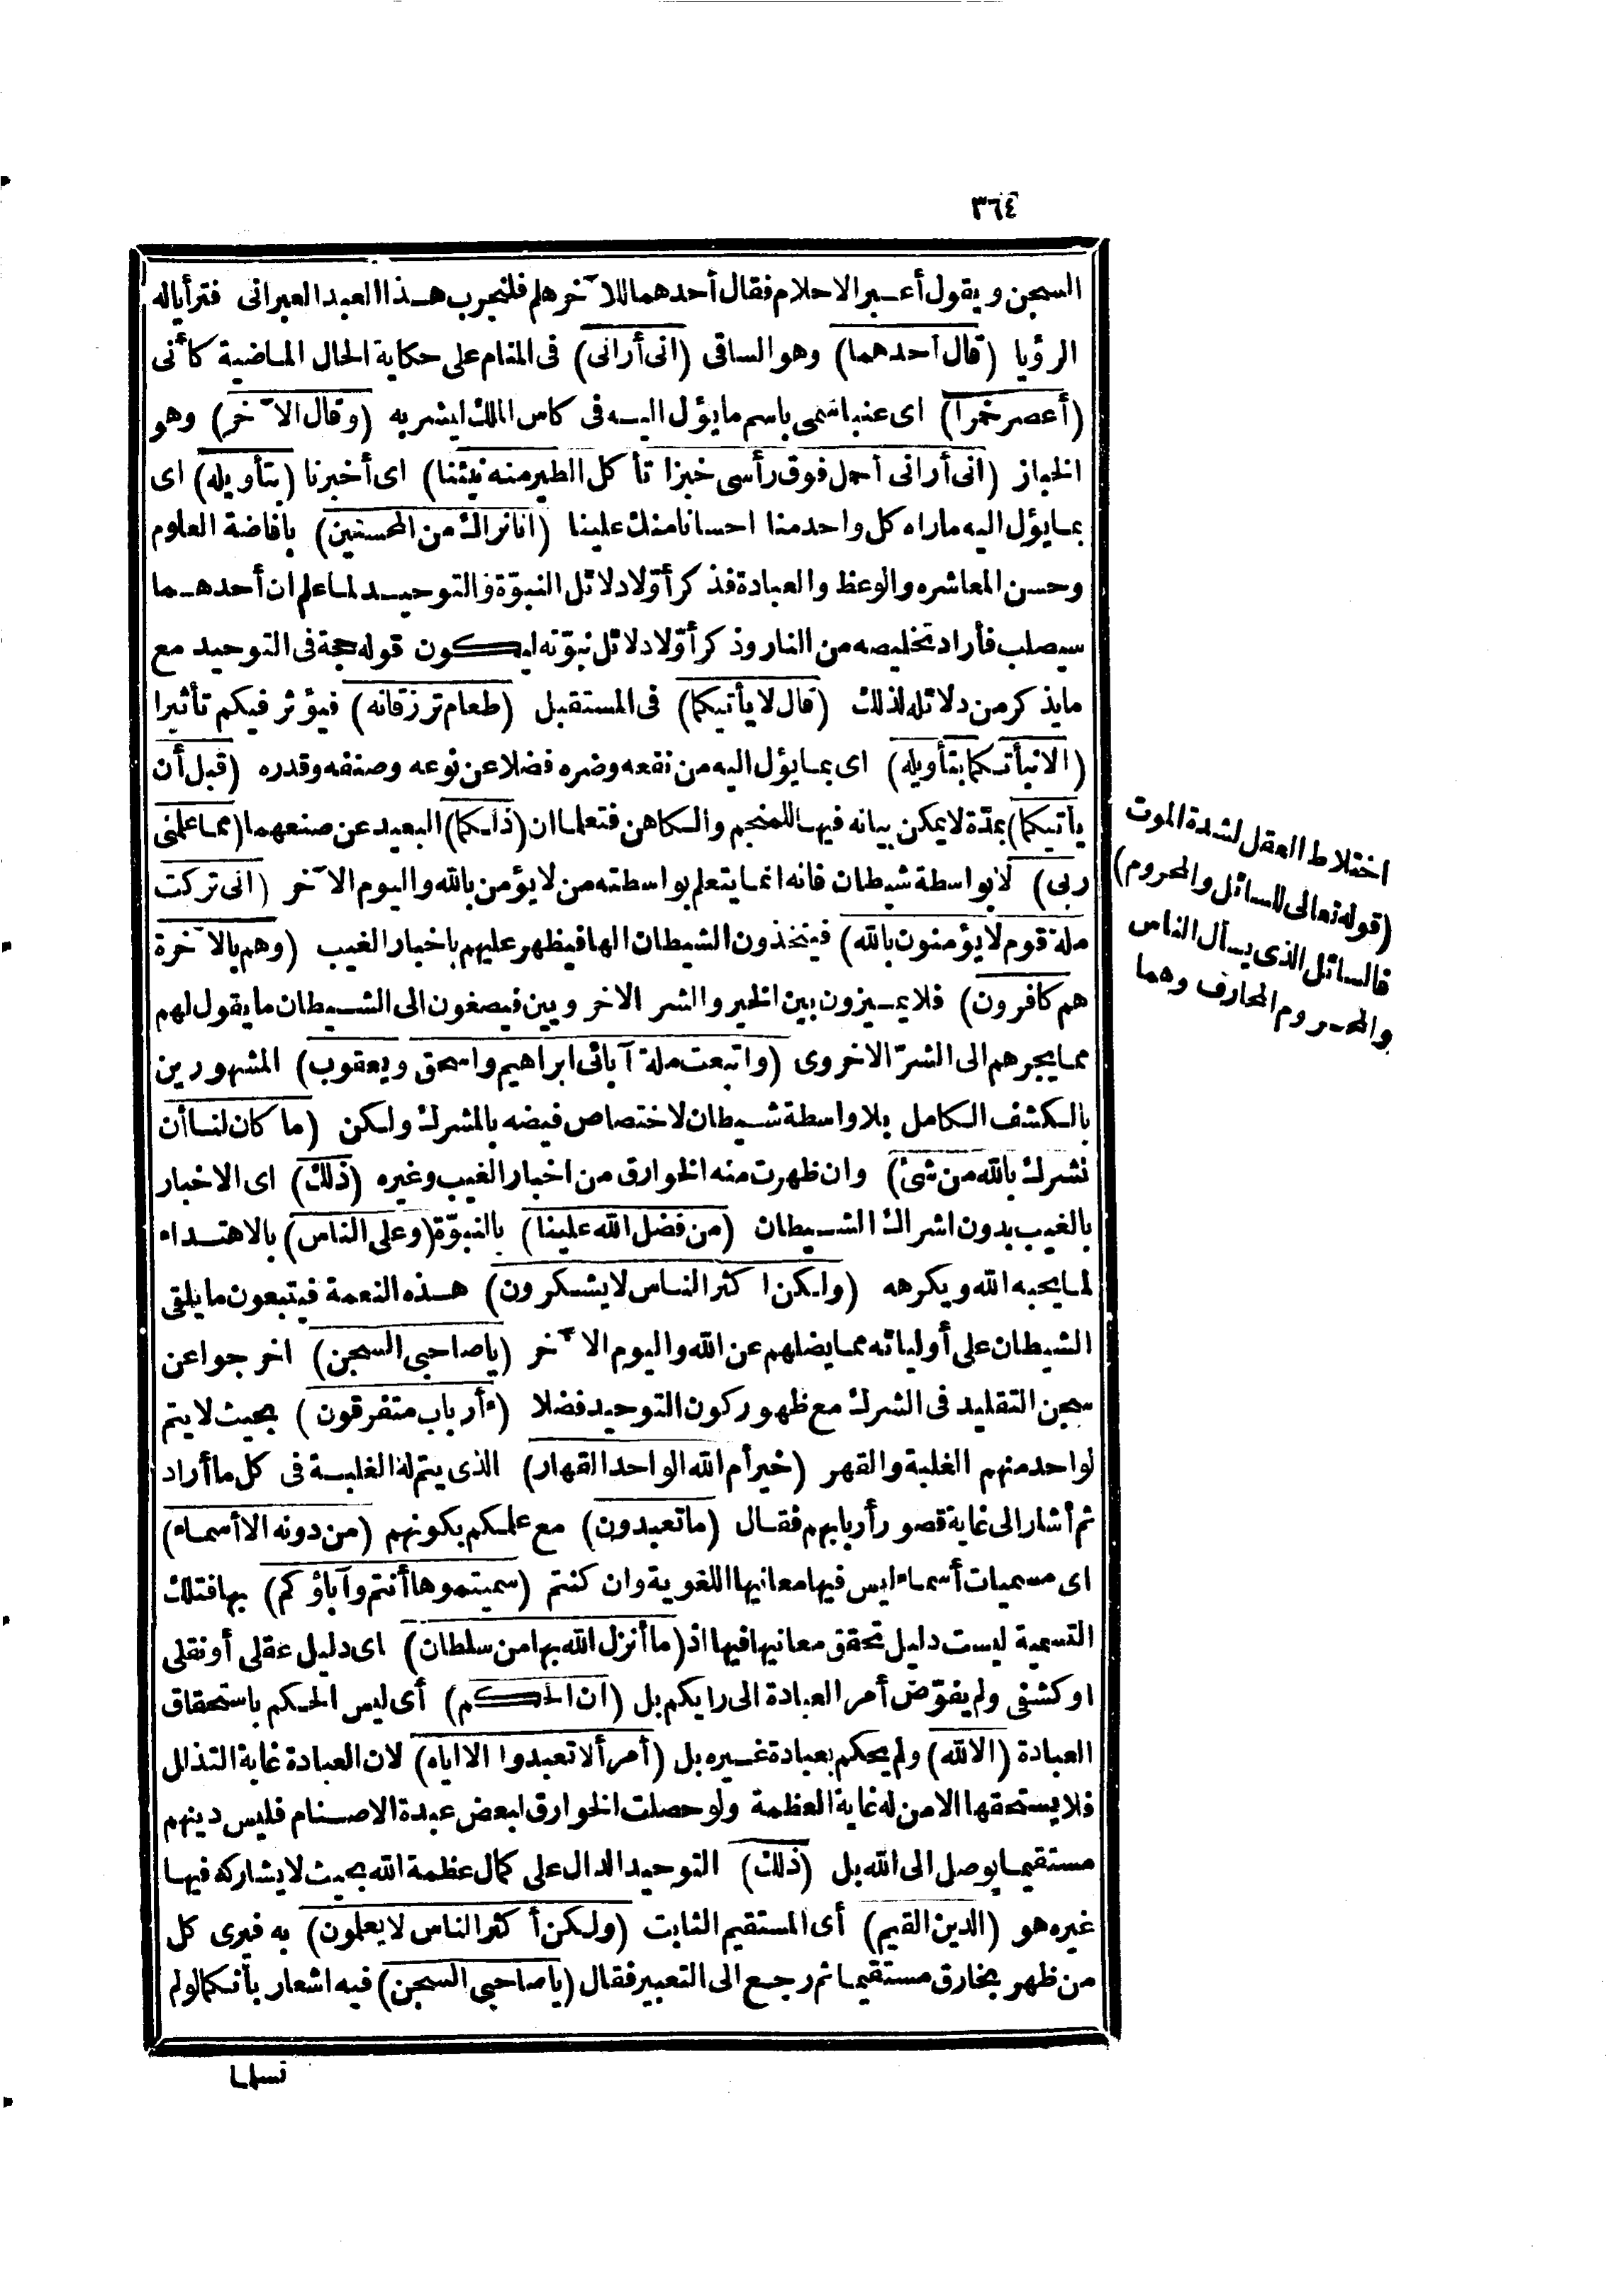 ٣٦٤
السجن ويقول أعبر الاحلام فقال أحدهما للآخر هلم فلنجرب هذا العبد العبرانى فترأياله
الرؤيا (قال أحدهما) وهو الساقى (انى أرانى) فى المنام على حكاية الحال الماضية كأنى
(أعصر خمرا) اى عنبا سمى باسم ما يؤل اليه فى كاس الملك ليشربه (وقال الآخر) وهو
الخباز (انى أرانى أحمل فوق رأسى خبزا تأكل الطير منه نبئنا) اى أخبرنا (بتأويله) اى
بما يؤل اليه ماراه كل واحد منا احسانا منك علينا (انا نراك من المحسنين) بافاضة العلوم
وحسن المعاشره والوعظ والعبادة فذكر أوّلا دلائل النبوّة والتوحيد لما علم ان أحدهما
سيصلب فأراد تخليصه من النار وذكر أوّلا دلائل نبوّته ليكون قوله حجة فى التوحيد مع
مايذكر من دلائله لذلك (قال لا يأتيكما) فى المستقبل (طعام ترزقانه) فيؤثر فيكم تأثيرا
(الا نبأتكما بتأويله) اى بما يؤل اليه من نفعه وضره فضلا عن نوعه وصنفه وقدره (قبل أن
يأتيكما) بمدّة لا يمكن بيانه فيها للمنجم والكاهن فتعلما ان (ذلكما) البعيد عن صنعهما (مما علمنى
ربى) لا بواسطة شيطان فانه انما يتعلم بواسطته من لا يؤمن بالله واليوم الآخر (انى تركت
ملة قوم لا يؤمنون بالله) فيتخذون الشيطان الها فيظهر عليهم باخبار الغيب (وهم بالآخرة
هم كافرون) فلا يميزون بين الخير والشر الاخرويين فيصغون الى الشيطان ما يقول لهم
مما يجرهم الى الشرّ الاخروى (واتبعت ملة آبائى ابراهيم واسحق ويعقوب) المشهورين
بالكشف الكامل بلا واسطة شيطان لاختصاص فيضه بالمشرك ولكن (ما كان لنا أن
نشرك بالله من شئ) وان ظهرت منه الخوارق من اخبار الغيب وغيره (ذلك) اى الاخبار
بالغيب بدون اشراك الشيطان (من فضل الله علينا) بالنبوّة (وعلى الناس) بالاهتداء
لما يحبه الله ويكرهه (ولكن اكثر الناس لا يشكرون) هذه النعمة فيتبعون ما يلقى
الشيطان على أوليائه مما يضلهم عن الله واليوم الآخر (يا صاحبى السجن) اخرجوا عن
سجن التقليد فى الشرك مع ظهور كون التوحيد فضلا (ءأرباب متفرقون) بحيث لا يتم
لواحد منهم الغلبة والقهر (خير أم الله الواحد القهار) الذى يتم له الغلبة فى كل ما أراد
ثم أشار الى غاية قصور أربابهم فقال (ما تعبدون) مع علمكم بكونهم (من دونه الا أسماء)
اى مسميات أسماء ليس فيها معانيها اللغوية وان كنتم (سميتموها أنتم وآباؤكم) بها فتلك
التسمية ليست دليل تحقق معانيها فيها اذ (ما أنزل الله بها من سلطان) اى دليل عقلى أو نقلى
او كشفى ولم يفوّض أمر العبادة الى رايكم بل (ان الحكم) أى ليس الحكم باستحقاق
العبادة (الا لله) ولم يحكم بعبادة غيره بل (أمر ألا تعبدوا الا اياه) لان العبادة غاية التذلل
فلا يستحقها الا من له غاية العظمة ولو حصلت الخوارق لبعض عبدة الاصنام فليس دينهم
مستقيما يوصل الى الله بل (ذلك) التوحيد الدال على كمال عظمة الله بحيث لا يشاركه فيها
غيره هو (الدين القيم) أى المستقيم الثابت (ولكن أكثر الناس لا يعلمون) به فيرى كل
من ظهر بخارق مستقيما ثم رجع الى التعبير فقال (يا صاحبى السجن) فيه اشعار بأنكما لو لم
تسلما
اختلاط العقل لشدة الموت
(قوله تعالى للسائل والمحروم)
فالسائل الذى يسأل الناس
والمحروم المحارف وهما